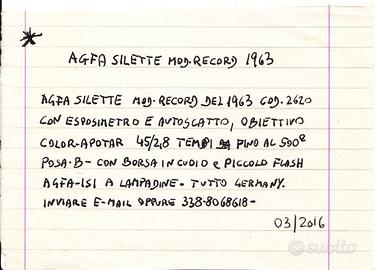 AGFA SILETTE MOD. RECORD 1963
AGFA SILETTE MOD. RECORD DEL 1963 COD. 2620
CON ESPOSIMETRO E AUTOSCATTO, OBIETTIVO
COLOR-APOTAR 45/2,8 TEMPI FINO AL 500e
POSA-B- CON BORSA IN CUOIO e PICCOLO FLASH
AGFA-ISI A LAMPADINE- TUTTO GERMANY.
INVIARE E-MAIL OPPURE 338-8068618-
03/2016
subito